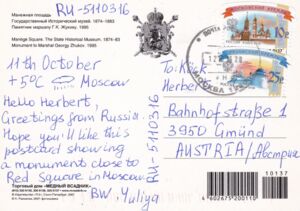 RU-5110316
Манежная площадь
Государственный Исторический музей. 1874–1883
Памятник маршалу Г.К. Жукову. 1995
Manege Square. The State Historical Museum. 1874–83
Monument to Marshal Georgy Zhukov. 1995
11th October
+5°C Moscow
Hello Herbert,
Greetings from Russia.
Hope you'll like this
postcard showing
a monuments close to
Red Square in Moscow.
BW, Yuliya
Торговый дом «МЕДНЫЙ ВСАДНИК»
RU-5110316
МОСКВА
10р
25р
To:
Herbert
Bahnhofstraße 1
3950 Gmünd
AUSTRIA/Австрия
10137
4602675200110